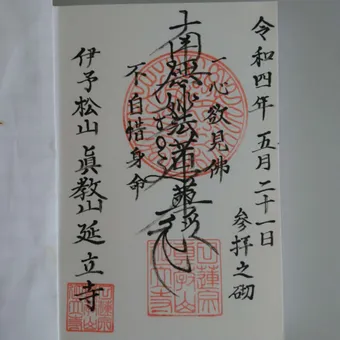 令和四年 五月二十一日
参拝之砌
一心欲見佛
南無妙法蓮華経
不自惜身命
伊予松山 眞教山 延立寺